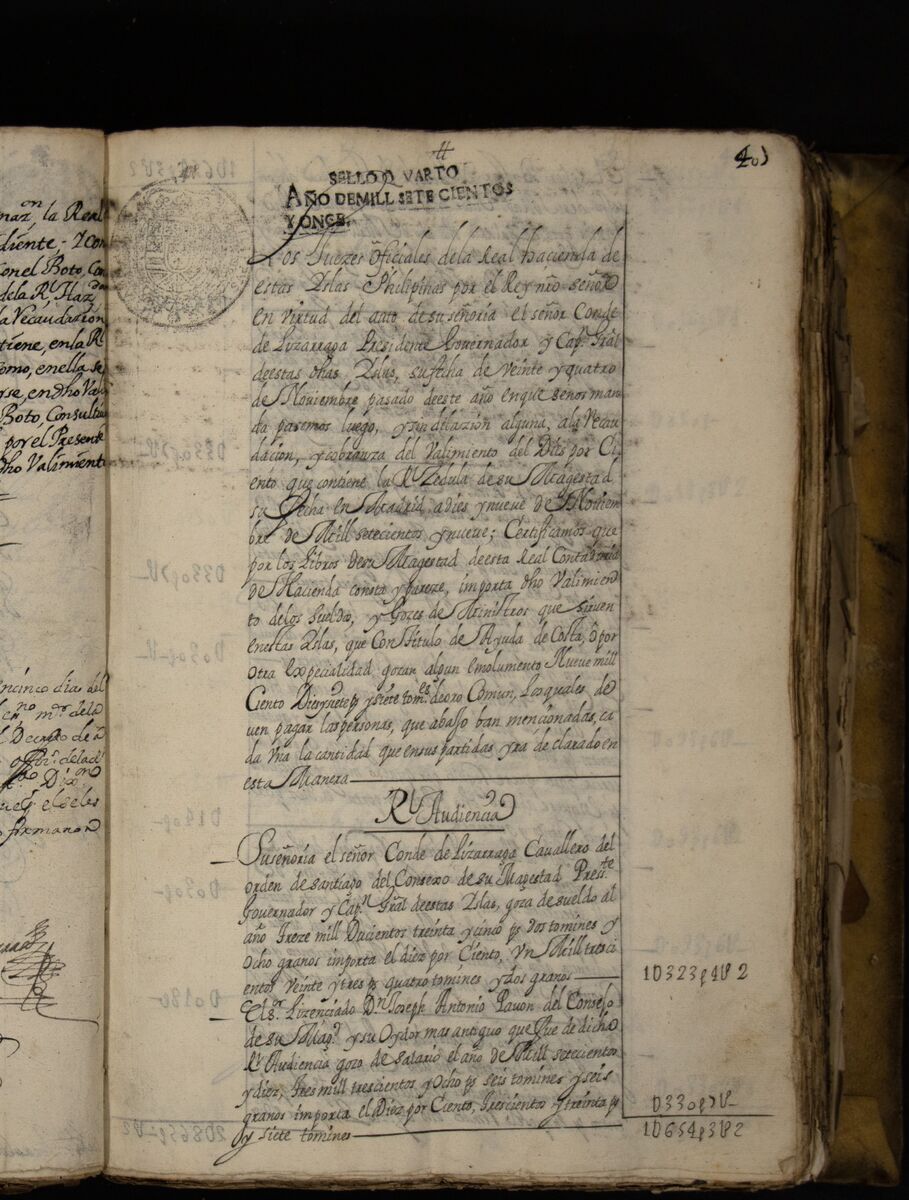 naz.on la Real
diente, Y con
Conel Boto, Con
dela Rl. Haz.da
la Recaudazion
tiene, en la Rl
Como, en ella se
rse, en dho Vali
Boto, Consulti
por el Presente
dho Valimiento
ncinco dias del
mr. dela
Decreto de a
firmaron
40
SELLO QVARTO
AÑO DE MILL SETECIENTOS
Y ONCE.
Los Juezes officiales dela Real hacienda de
estas Yslas Philipinas por el Rey nro señor
en virtud del auto de su señoria el señor Conde
de Lizarraga Presidente Governador y Cap.n Gral
deestas dhas Yslas, su fcha de veinte y quatro
de Noviembre pasado deeste año enque se nos man
da pasemos luego, y sin delazion alguna, ala Recau
dacion, y cobranza del Valimiento del Diez por Ci
ento que contiene la Rl Zedula de su Magestad
su fecha en Madrid a dies y nueve de Noviem
bre de Mill setecientos y nueve; Certificamos que
por los Libros de su Magestad deesta Real Contaduria
de Hacienda consta y pareze, importa dho Valimien
to delos sueldos, y Gozes de Ministros que sirven
en estas Yslas, que Con titulo de Ayuda de Costa, ô por
otra especialidad gozan algun emolumento Nueve mill
Ciento Diez y siete ps y siete tom.es de oro Comun, Los quales de
ven pagar las personas, que abajo ban mencionadas, ca
da Vna la cantidad que en sus partidas yra de clarado en
esta Manera
Rl. Audiencia
Su señoria el señor Conde de Lizarraga Cavallero del
orden de santiago del Consexo de su Magestad Pres.te
Governador y Cap.n Gral deestas Yslas, goza de sueldo al
año treze mill Ducientos treinta y cinco ps dos tomines y
ocho granos importa el diez por Ciento, Vn Mill tresci
entos Veinte y tres ps quatro tomines y dos granos
1U323p4U2
El s.r Lizenciado D.n Joseph Antonio Pavon del Consejo
de su Mag.d y su Oydor mas antiguo que fue de dicha
Rl Audiencia gozo de salario el año de Mill setecientos
y diez, tres mill trescientos y ocho ps seis tomines y seis
granos importa el Diez por Ciento, trescientos y treinta ps
y siete tomines
U330p7U
1U654p3U2